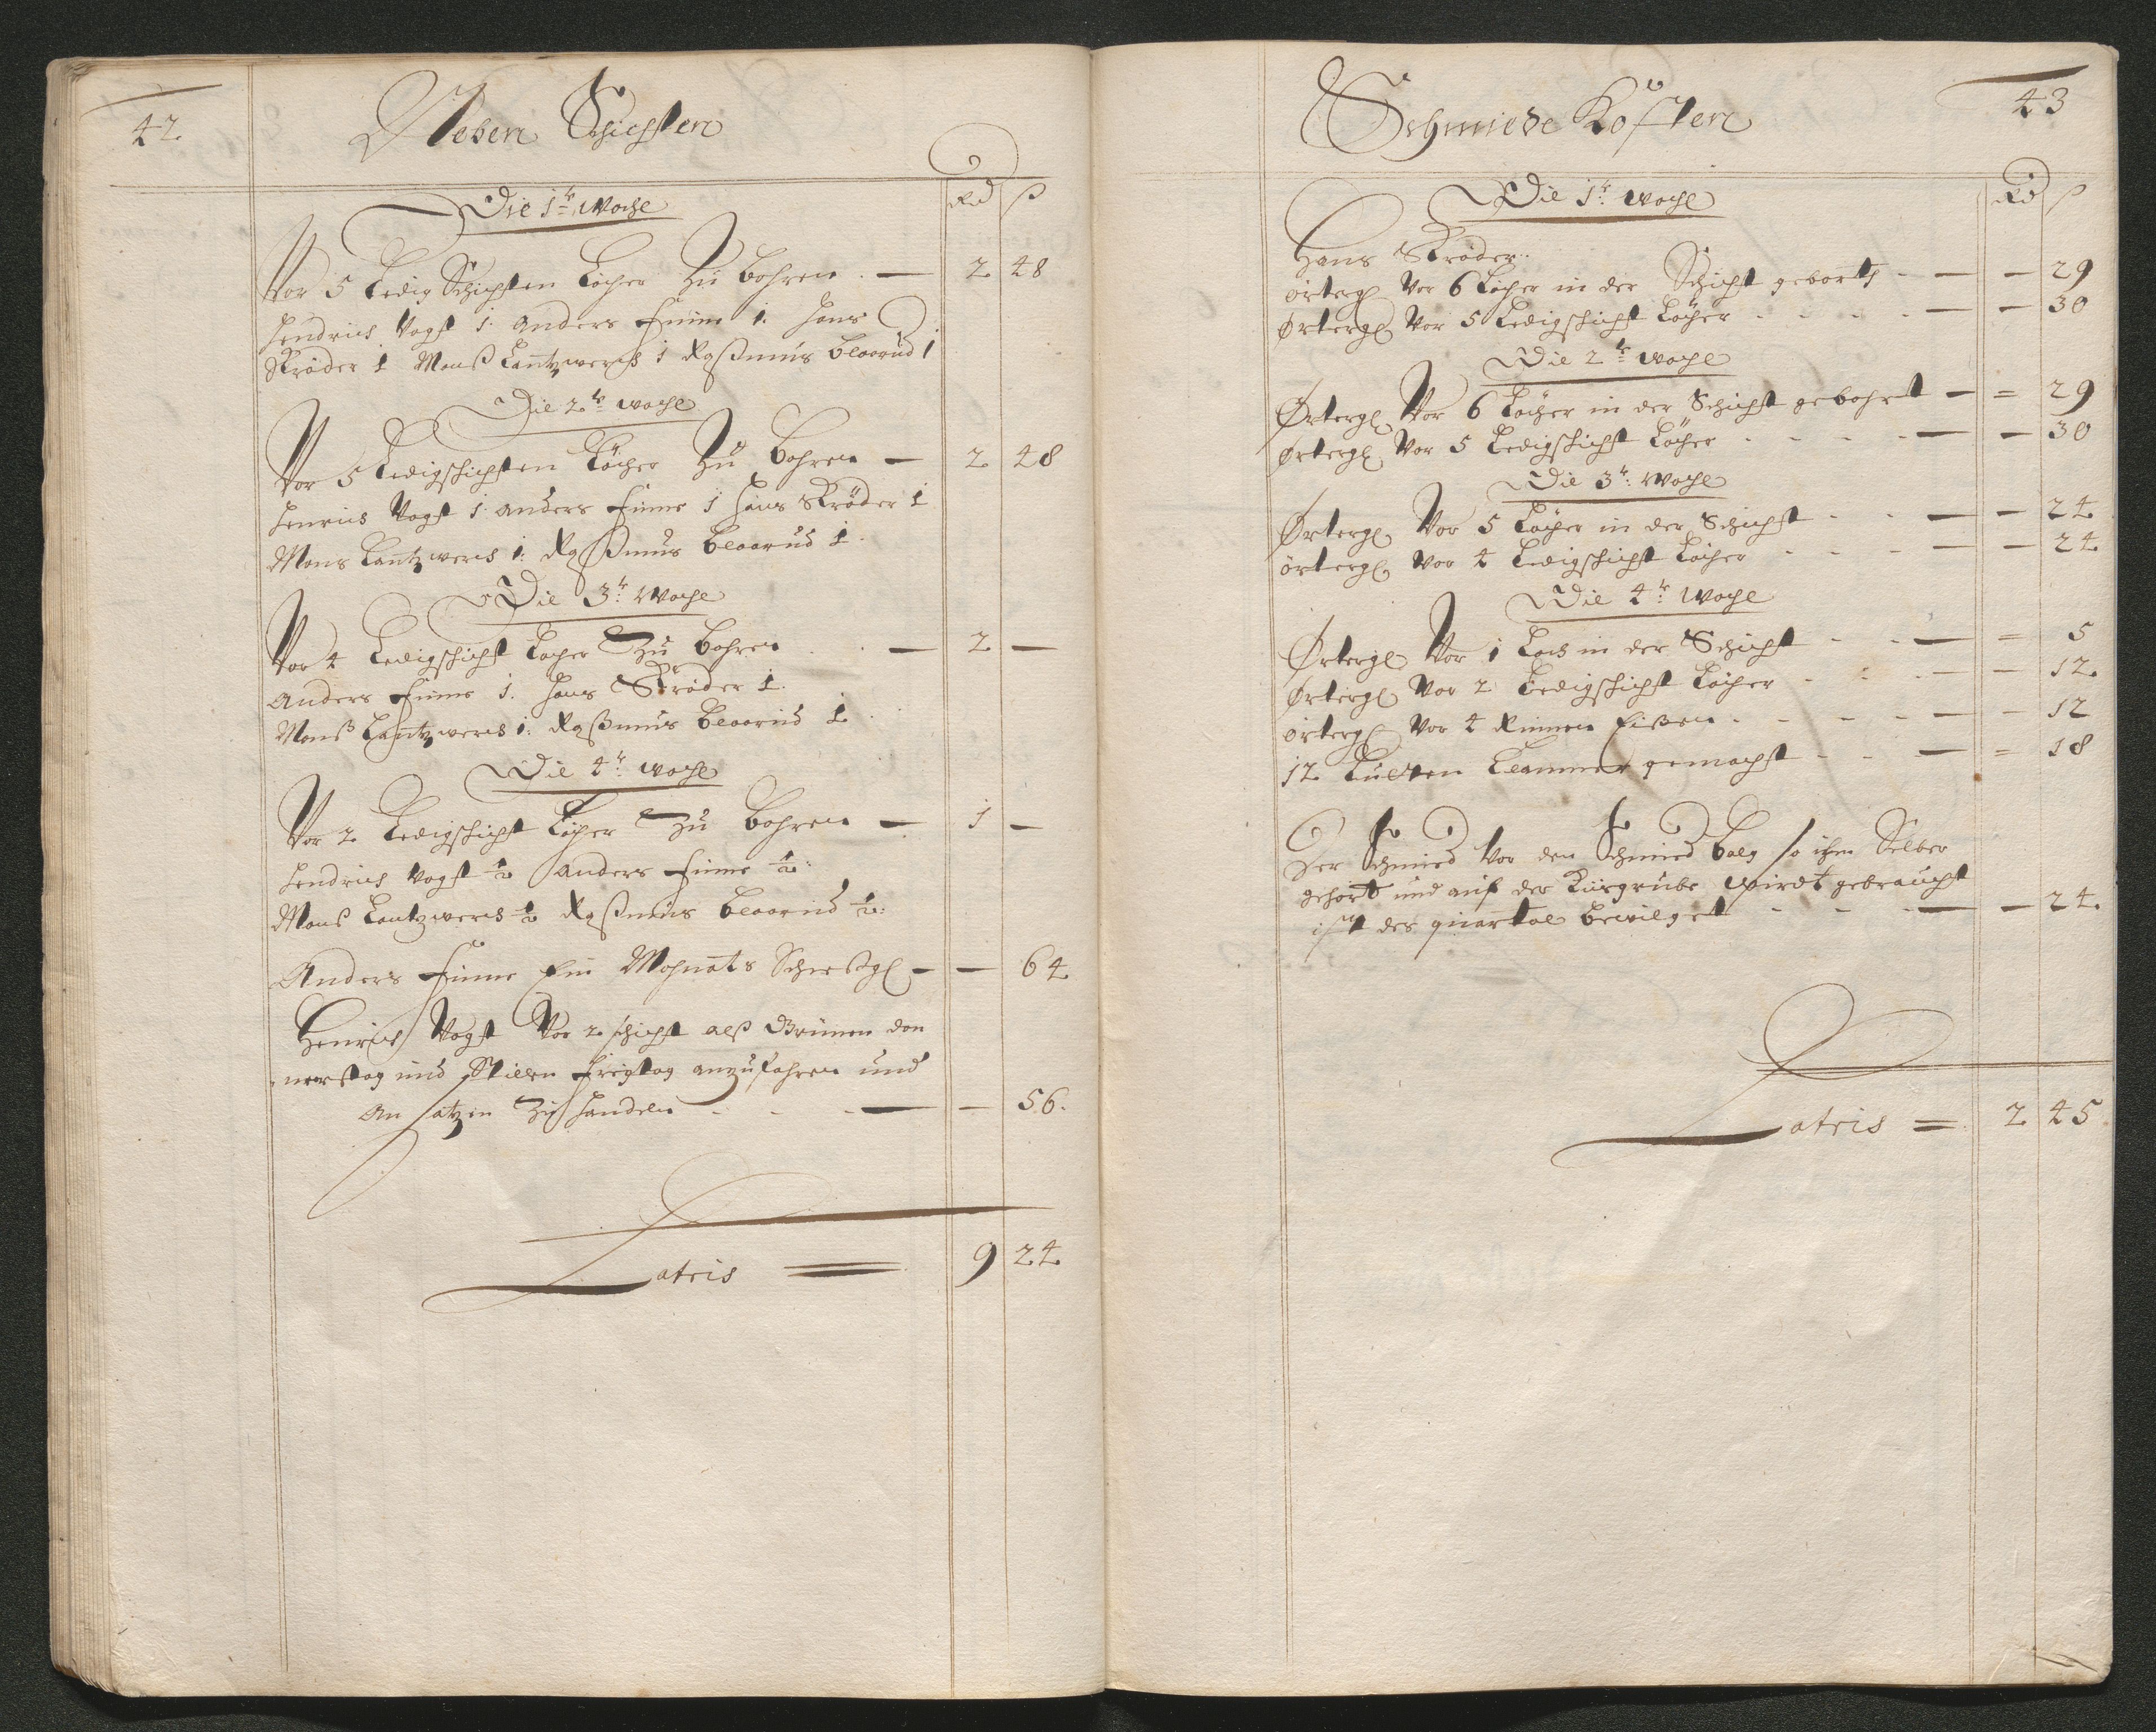 42
Neben Schichten
Rd ß
Die 1te Woche
Vor 5 Ledig Schichten Löcher Zu bohren - 2 48
Hendrich Vogt 1. Anders Finne 1. Hans
Schröder 1 Monß Lantzwerch 1 Raßmus 1
Die 2te woche
Vor 5 Ledigschichten Löcher Zu Bohren - 2 48
Henrich Vogt 1. Anders Finne 1 Hans Schröder 1
Mons Lantzwerch 1: Raßmus 1.
Die 3te Woche
Vor 4 Ledigschicht Löcher Zu Bohren - 2 -
Anders Finne 1. Hans Schröder 1.
Monß Lantzwerch 1: Raßmus 1.
Die 4te woche
Vor 2 Ledigschicht Löcher Zu Bohren - 1 -
Hendrich Vogt ½ Anders Finne ½:
Monß Lantzwerch ½ Raßmus ½:
Anders Finne Ein Mohnats - - 64
Henrich Vogt Vor 2 schicht alß Grünen don
nerstag und Stillen Freytag anzufahren und
An Zu Handeln - - 56.
Latris = 9 24
43
Schmiede Kösten
Rd ß
Die 1te woche
Hans Schröder:
örtergl Vor 6 Löcher in der Schicht gebortt - - 29
Örtergl Vor 5 Ledigschicht Löcher - - 30
Die 2te woche
Örtergl Vor 6 Löcher in der Schicht gebohrt - = 29
örtergl Vor 5 Ledigschicht Löcher - - 30
Die 3te Woche
Örtergl Vor 5 Löcher in der Schicht - - 24
örtergl Vor 4 Ledigschicht Löcher - - 24
Die 4te Woche
Örtergl Vor 1 Loch in der Schicht - = 5
Örtergl Vor 2 Ledigschicht Löcher - - 12
örtergl Vor 4 Rinnen Eißen - - 12
12 gemacht - = 18
Der Schmied Vor den Schmied balg so ihm Selber
gehört und auf der wirdt gebraucht
ist des quartal bewilget - - 24
Latris = 2 45